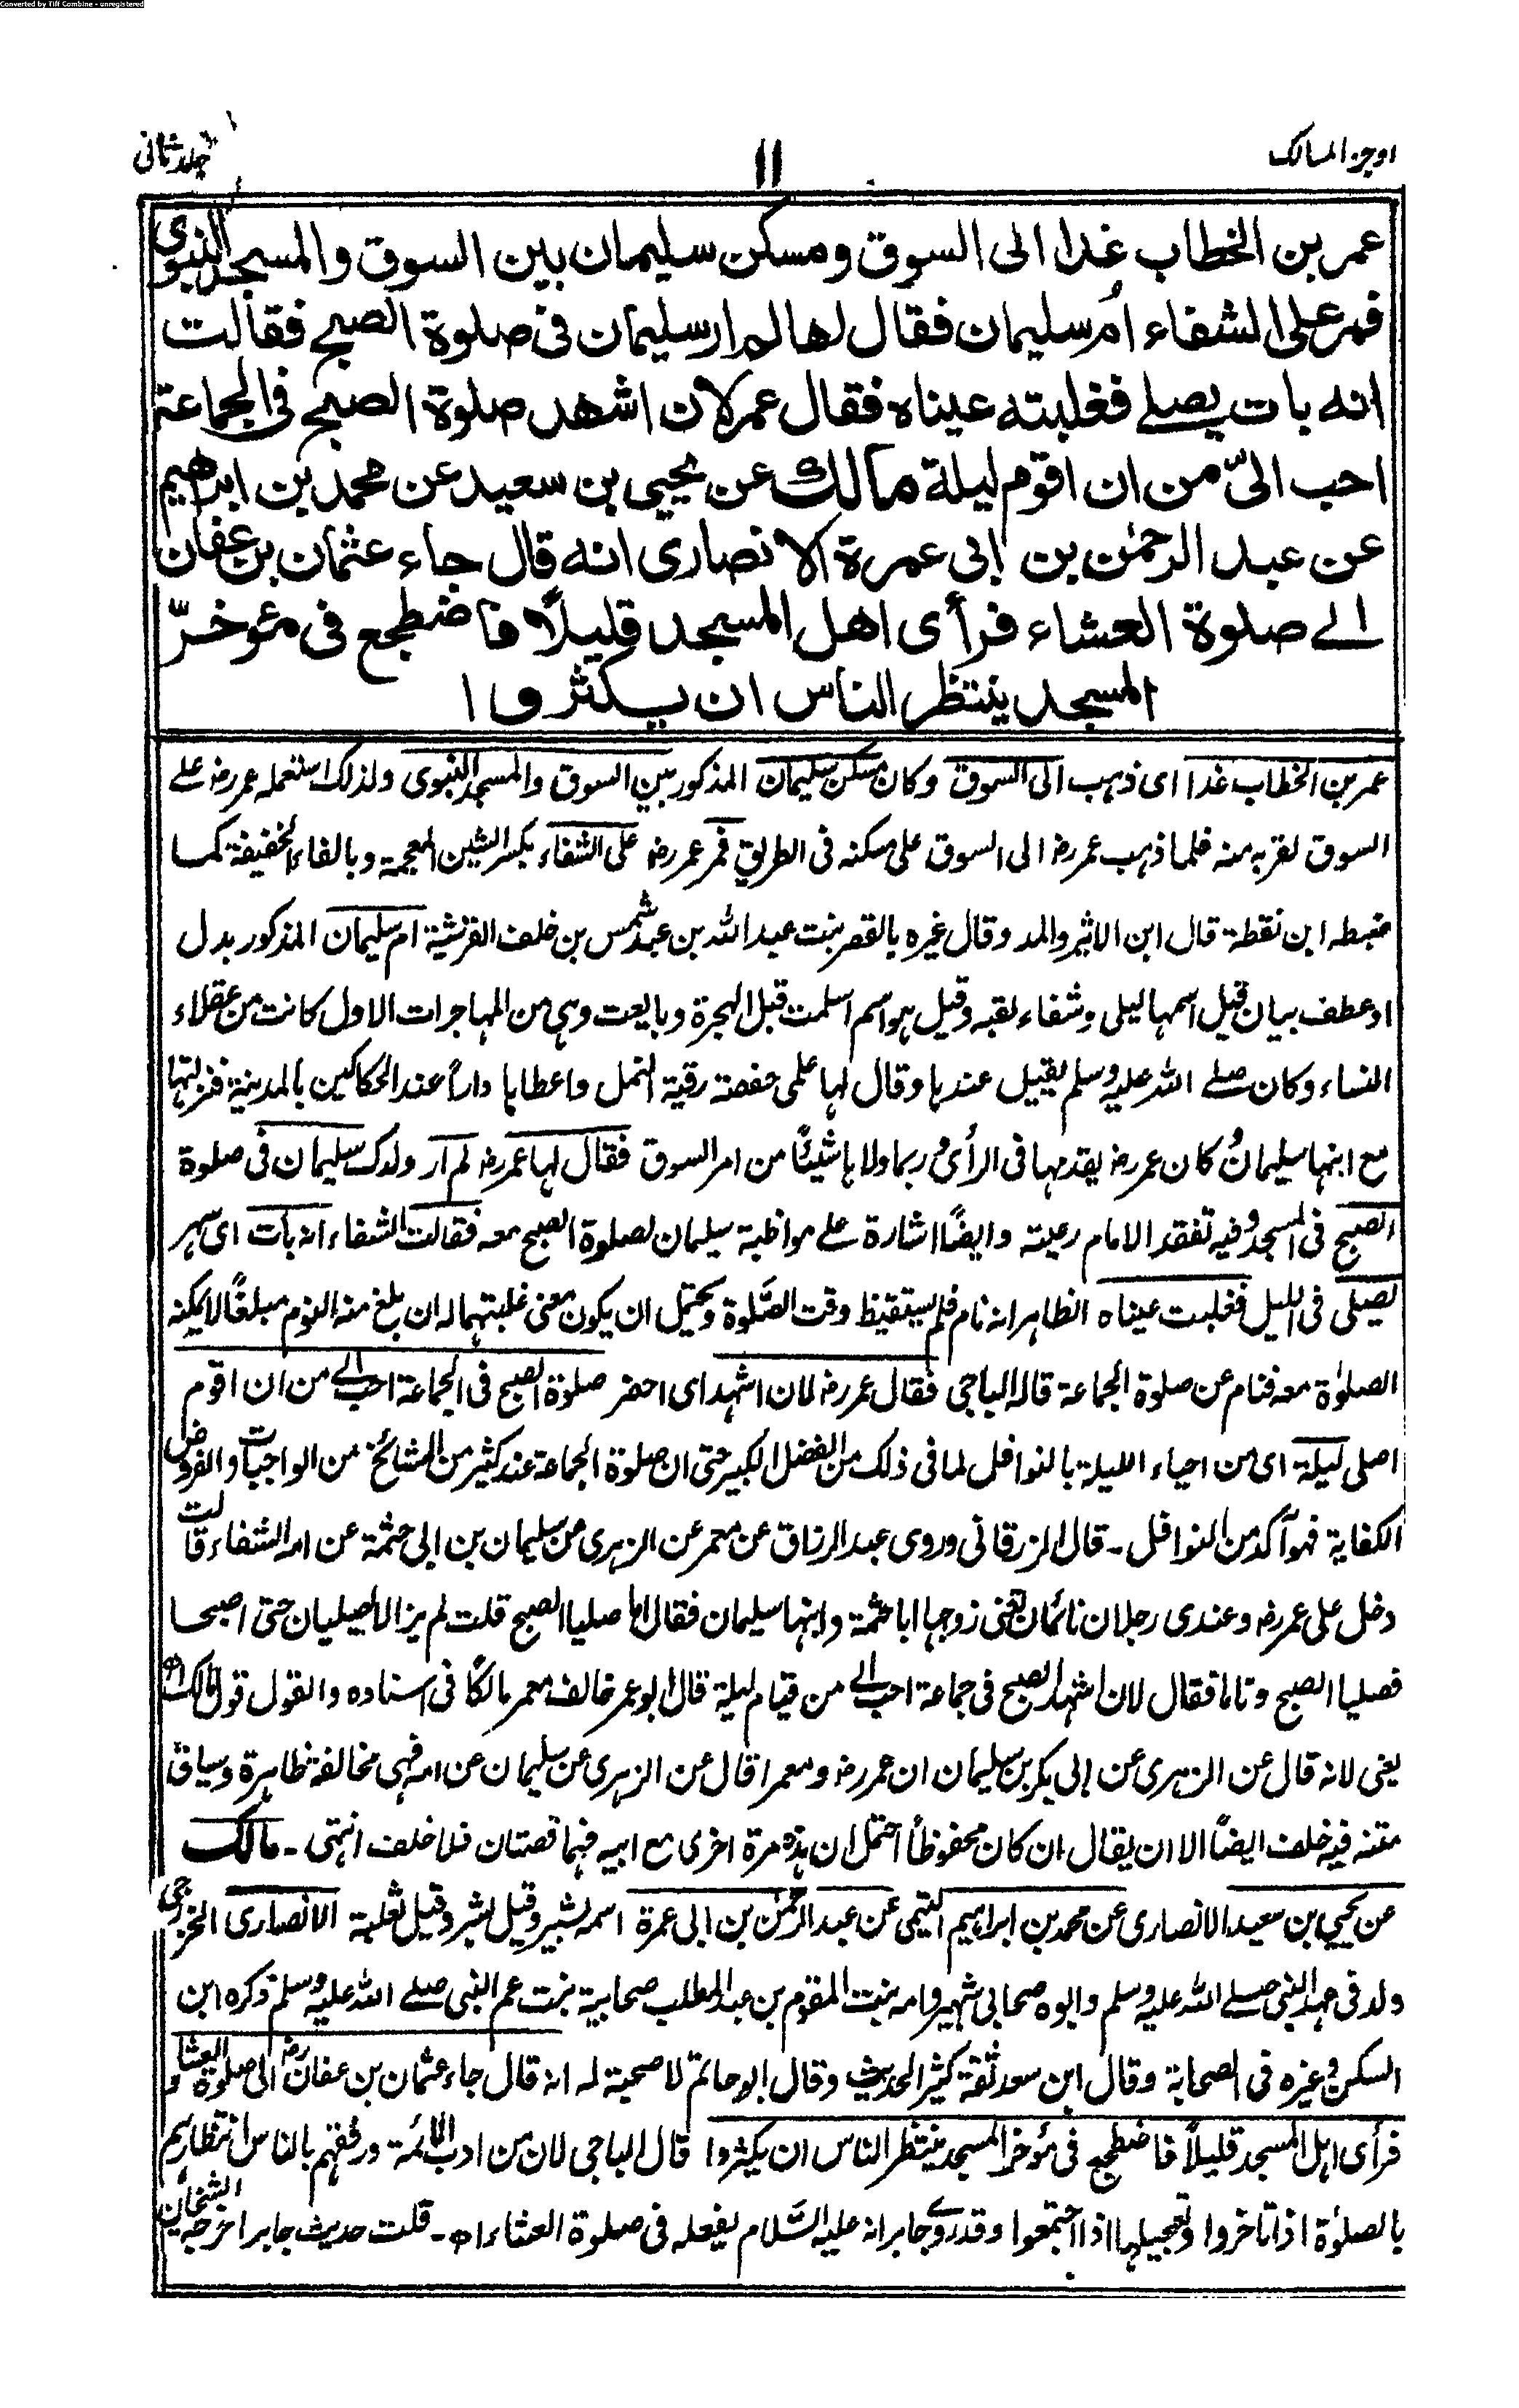 Converted by Tiff Combine - unregistered
اوجز المسالك
١١
جلد ثانى
عمر بن الخطاب غدا الى السوق ومسكن سليمان بين السوق والمسجد النبوى
فمر على الشفاء ام سليمان فقال لها لم ار سليمان فى صلوة الصبح فقالت
انه بات يصلے فغلبته عيناه فقال عمر لان اشهد صلوة الصبح فى الجماعة
احب الىّ من ان اقوم ليلة مالك عن يحيى بن سعيد عن محمد بن ابراهيم
عن عبد الرحمٰن بن ابى عمرة الانصارى انه قال جاء عثمان بن عفان
الے صلوة العشاء فرأى اهل المسجد قليلاً فاضطجع فى مؤخرّ
المسجد ينتظر الناس ان يكثروا
عمر بن الخطاب غدا اى ذهب الى السوق وكان مسكن سليمان المذكور بين السوق والمسجد النبوى ولذلك استعمله عمر رض علے
السوق لقربه منه فلما ذهب عمر رض الى السوق على مسكنه فى الطريق فمر عمر رض على الشفاء بكسر الشين المعجمة وبالفاء الخفيفة كما
ضبطه ابن نقطة قال ابن الاثير والمد وقال غيره بالقصر بنت عبد الله بن عبد شمس بن خلف القرشية ام سليمان المذكور بدل
او عطف بيان قيل اسمها ليلى وشفاء لقبه وقيل هو اسم اسلمت قبل الهجرة وبايعت وهى من المهاجرات الاول كانت من عقلاء
النساء وكان صلے الله عليه وسلم يقيل عندها وقال لها علمى حفصة رقية النمل واعطاها داراً عند الحكاكين بالمدينة فنزلتها
مع ابنها سليمان وكان عمر رض يقدمها فى الرأى و ربما ولاها شيئاً من امر السوق فقال لها عمر رض لم ار ولدك سليمان فى صلوة
الصبح فى المسجد وفيه تفقد الامام رعيته وايضاً اشارة علے مواظبة سليمان لصلوة الصبح معه فقالت الشفاء انه بات اى سهر
يصلى فى الليل فغلبت عيناه الظاهر انه نام فلم يستيقظ وقت الصلوة ويحتمل ان يكون معنى غلبتهما له ان بلغ منه النوم مبلغاً لا يمكنه
الصلوٰة معه فنام عن صلوة الجماعة قاله الباجى فقال عمر رض لان اشهد اى احضر صلوة الصبح فى الجماعة احب الے من ان اقوم
اصلى ليلة اى من احياء الليلة بالنوافل لما فى ذلك من الفضل الكبير حتى ان صلوة الجماعة عند كثير من المشائخ من الواجبات والفروض
الكفاية فهو آكد من النوافل ـ قال الزرقانى وروى عبد الرزاق عن معمر عن الزهرى عن سليمان بن ابى حثمة عن امه الشفاء قالت
دخل على عمر رض وعندى رجلان نائمان تعنى زوجها ابا حثمة وابنها سليمان فقال اما صليا الصبح قلت لم يزالا يصليان حتى اصبحا
فصليا الصبح وناما فقال لان اشهد الصبح فى جماعة احب الے من قيام ليلة قال ابو عمر خالف معمر مالكاً فى اسناده والقول قول مالك اه
يعنى لانه قال عن الزهرى عن ابى بكر بن سليمان ان عمر رض ومعمرا قال عن الزهرى عن سليمان عن امه فهى مخالفة ظاهرة وسياق
متنه فيه خلف ايضاً الا ان يقال ان كان محفوظاً احتمل ان هذه مرة اخرى مع ابيه فهما قصتان فلا خلف انتهى ـ مالك
عن يحيى بن سعيد الانصارى عن محمد بن ابراهيم التيمى عن عبد الرحمٰن بن ابى عمرة اسمه بشير وقيل بشر وقيل ثعلبة الانصارى الخزرجى
ولد فى عهد النبى صلے الله عليه وسلم وابوه صحابى شهير وامه بنت المقوم بن عبد المطلب صحابية بنت عم النبى صلے الله عليه وسلم ذكره ابن
السكن وغيره فى الصحابة وقال ابن سعد ثقة كثير الحديث وقال ابو حاتم لا صحبة له انه قال جاء عثمان بن عفان رض الى صلوة العشاء
فرأى اهل المسجد قليلاً فاضطجع فى مؤخر المسجد ينتظر الناس ان يكثروا قال الباجى لان من ادب الائمة ورفقهم بالناس انتظارهم
بالصلوٰة اذا تاخروا وتعجيلها اذا اجتمعوا وقد روے جابر انه عليه السَّلام يفعله فى صلوة العشاء اه ـ قلت حديث جابر اخرجه الشيخان